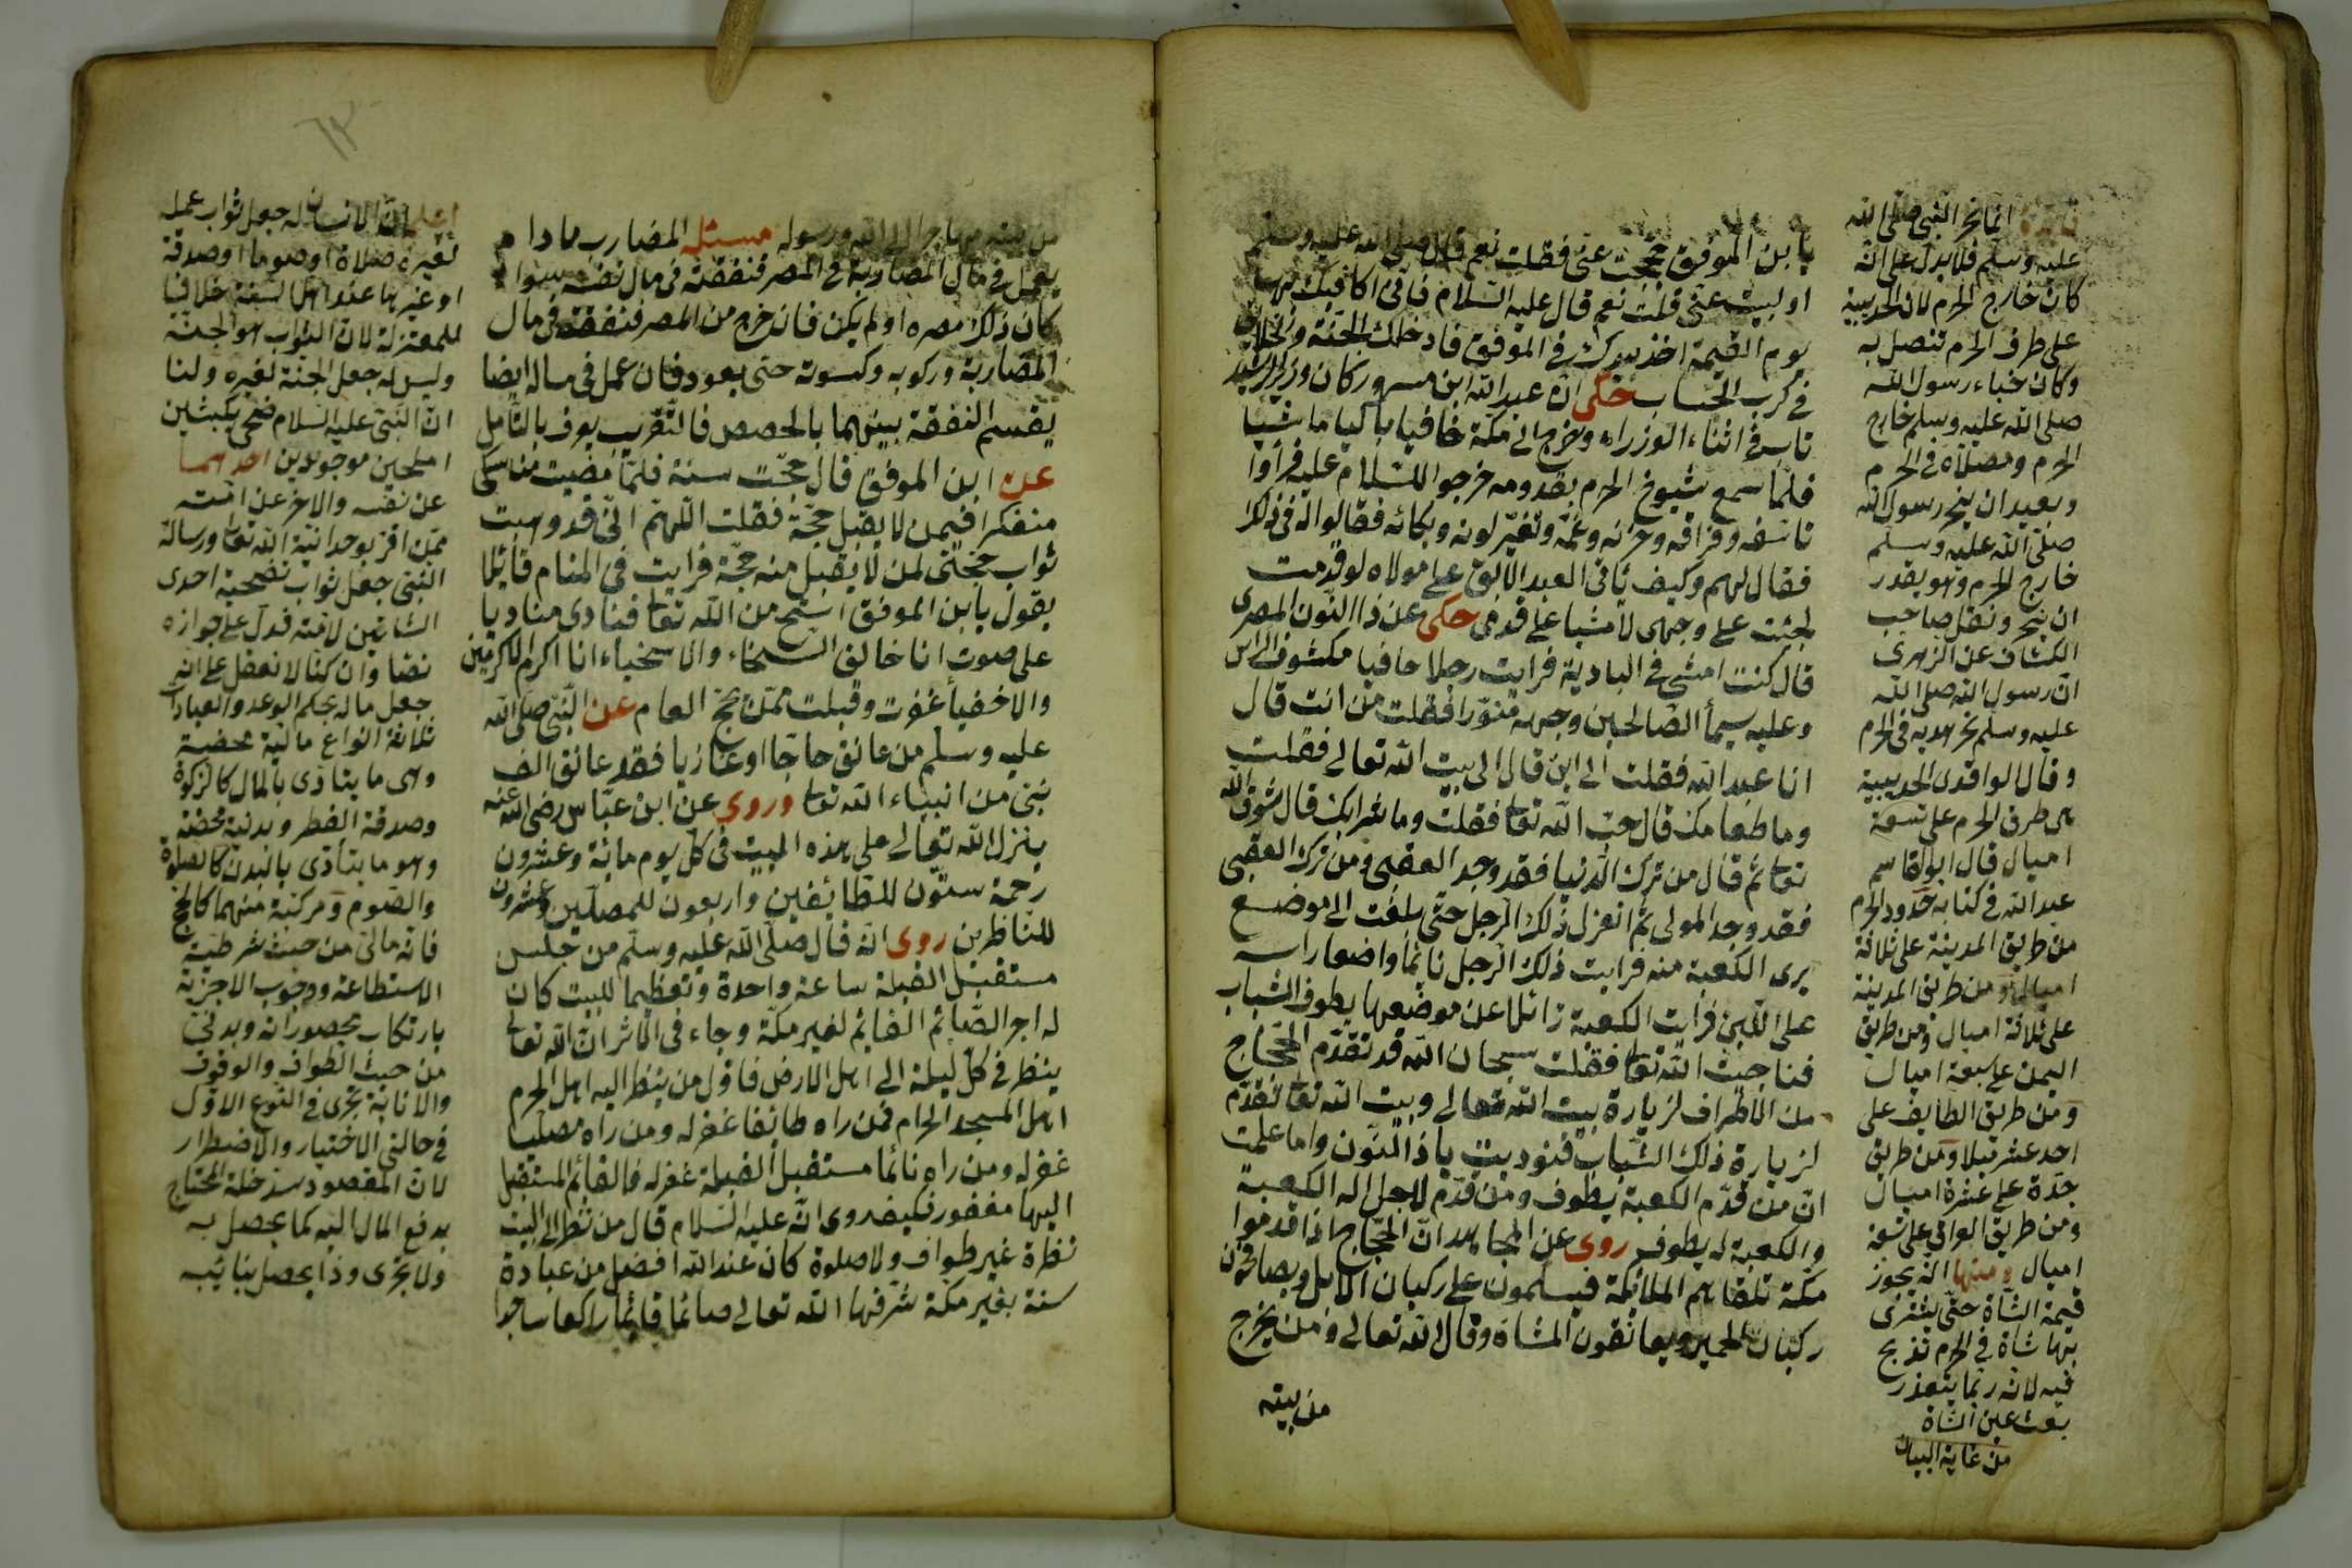 يا بن الموفق حججت عنى فقلت نعم قال صلى الله عليه وسلم
او لبيت عنى قلت نعم قال عليه السلام فانى اكافيك بها
يوم القيمة اخذ بيدك فى الموقف فادخلك الجنة والخلايق
فى كرب الحساب حكى ان عبد الله ابن مسرور كان وزير الرشيد
تاب فى اثناء الوزراه وخرج الى مكة حافيا باكيا ماشيا
فلما سمع شيوخ الحرم بقدومه خرجوا للسلام عليه فراوا
تاسفه وفراقه وحزنه وغمه وتغير لونه وبكائه فقالوا له فى ذلك
فقال لهم وكيف ياتى العبد الابق على مولاه لو قدمت
لجئت على وجهى لا مشيا على قدمى حكى عن ذا النون المصرى
قال كنت امشى فى البادية فرايت رجلا حافيا مكشوف الراس
وعليه سيما الصالحين وجهه منورا فقلت من انت قال
انا عبد الله فقلت الى اين قال الى بيت الله تعالى فقلت
وما طعامك قال حب الله تعا فقلت وما شرابك قال شوق الله
تعا ثم قال من ترك الدنيا فقد وجد العقبى ومن ترك العقبى
فقد وجد المولى ثم انعزل ذلك الرجل حتى بلغت الى موضع
يرى الكعبة منه فرايت ذلك الرجل نائما واضعا راسه
على اللبن فرايت الكعبة زائلا عن موضعها يطوف الشباب
فناجيت الله تعا فقلت سبحان الله قد تقدم الحجاج
من الاطراف لزيارة بيت الله تعالى وبيت الله تعا تقدم
لزيارة ذلك الشباب فنوديت يا ذا النون واما علمت
ان من قدم الكعبة يطوف ومن قدم لاجل اله الكعبة
والكعبة له يطوف روى عن المجاهد ان الحجاج اذا قدموا
مكة تلقاهم الملائكة فيسلمون على ركبان الابل ويصافحون
ركبان الحمير ويعانقون المشاة وقال الله تعالى ومن يخرج
من بيته
انما نحر النبى صلى الله
عليه وسلم فلا يدل على انه
كان خارج الحرم لان الحديبية
على طرف الحرم تتصل به
وكان خباء رسول الله
صلى الله عليه وسلم خارج
الحرم ومصلاه فى الحرم
وبعيد ان ينحر رسول الله
صلى الله عليه وسلم
خارج الحرم وهو يقدر
ان ينحر ونقل صاحب
الكشاف عن الزهرى
ان رسول الله صلى الله
عليه وسلم نحر هديه فى الحرم
وقال الواقدى الحديبية
هى طرف الحرم على تسعة
اميال قال ابو القاسم
عبد الله فى كتابه حدود الحرم
من طريق المدينة على ثلاثة
اميال ومن طريق المدينة
على ثلاثة اميال ومن طريق
اليمن على سبعة اميال
ومن طريق الطايف على
احد عشر ميلا ومن طريق
جدة على عشرة اميال
ومن طريق العراق على تسعة
اميال ومنها انه يجوز
قيمة الشاة حتى يشترى
بها شاة فى الحرم تذبح
فيه لانه ربما يتعذر
بعث عين الشاة
من غاية البيان
من بيته مهاجرا الى الله ورسوله مسئله المضارب ما دام
يعمل فى مال المضاربة فى المصر فنفقته فى مال نفسه سوا
كان ذلك مصره او لم يكن فان خرج من المصر فنفقته فى مال
المضاربة وركوبه وكسوته حتى يعود فان عمل فى ماله ايضا
يقسم النفقة بينهما بالحصص فالتقريب يعرف بالتامل
عن ابن الموفق قال حججت سنة فلما قضيت مناسكى
متفكرا فيمن لا يقبل حجة فقلت اللهم انى قد وهبت
ثواب حجتى لمن لا يقبل منه حجة فرايت فى المنام قائلا
يقول يا بن الموفق استح من الله تعا فنادى مناديا
على صوت انا خالق السخاء والاسخياء انا اكرم الاكرمين
والاخفيا غفرت وقبلت ممن حج العام عن النبى صلى الله
عليه وسلم من عانق حاجا او غازيا فقد عانق الف
نبى من انبياء الله تعا وروى عن ابن عباس رضى الله عنه
ينزل الله تعالى على هذه البيت فى كل يوم مائة وعشرون
رحمة ستون للطائفين واربعون للمصلين وعشرون
للناظرين روى انه قال صلى الله عليه وسلم من جلس
مستقبل القبلة ساعة واحدة وتعظيما للبيت كان
له اجر الصائم القائم لغير مكة وجاء فى الاثر ان الله تعا
ينظر فى كل ليلة الى اهل الارض فاول من ينظر اليه اهل الحرم
اهل المسجد الحرام فمن راه طائفا غفر له ومن راه مصليا
غفر له ومن راه نائما مستقبل القبلة غفر له فالقائم المستقبل
اليها مغفور فكيف روى انه عليه السلام قال من نظر الى البيت
نظرة غير طواف ولا صلوة كان عند الله افضل من عبادة
سنة بغير مكة شرفها الله تعالى صائما قايما راكعا ساجدا
ان الانسان له جعل ثواب عمله
لغيره صلاة او صوما او صدقة
او غيرها عند اهل السنة خلافا
للمعتزلة لان الثواب هو الجنة
وليس له جعل الجنة لغيره ولنا
ان النبى عليه السلام ضحى بكبشين
املحين موجوئين احدهما
عن نفسه والاخر عن امته
ممن اقر بوحدانية الله تعا ورسالة
النبى جعل ثواب تضحية احدى
الشاتين لامته فدل على جوازه
نصا وان كنا لا نعقل على انه
جعل ماله بحكم الوعد والعبادات
ثلاثة انواع مالية محضة
وهى ما يتادى بالمال كالزكوة
وصدقة الفطر وبدنية محضة
وهو ما يتادى بالبدن كالصلوة
والصوم ومركبة منهما كالحج
فانه مالى من حيث شرطية
الاستطاعة ووجوب الاجزية
بارتكاب محظوراته وبدنى
من حيث الطواف والوقوف
والانابة تجرى فى النوع الاول
فى حالتى الاختيار والاضطرار
لان المقصود سد خلة المحتاج
بدفع المال اليه كما يحصل به
ولا تجرى وذا يحصل بنائبه